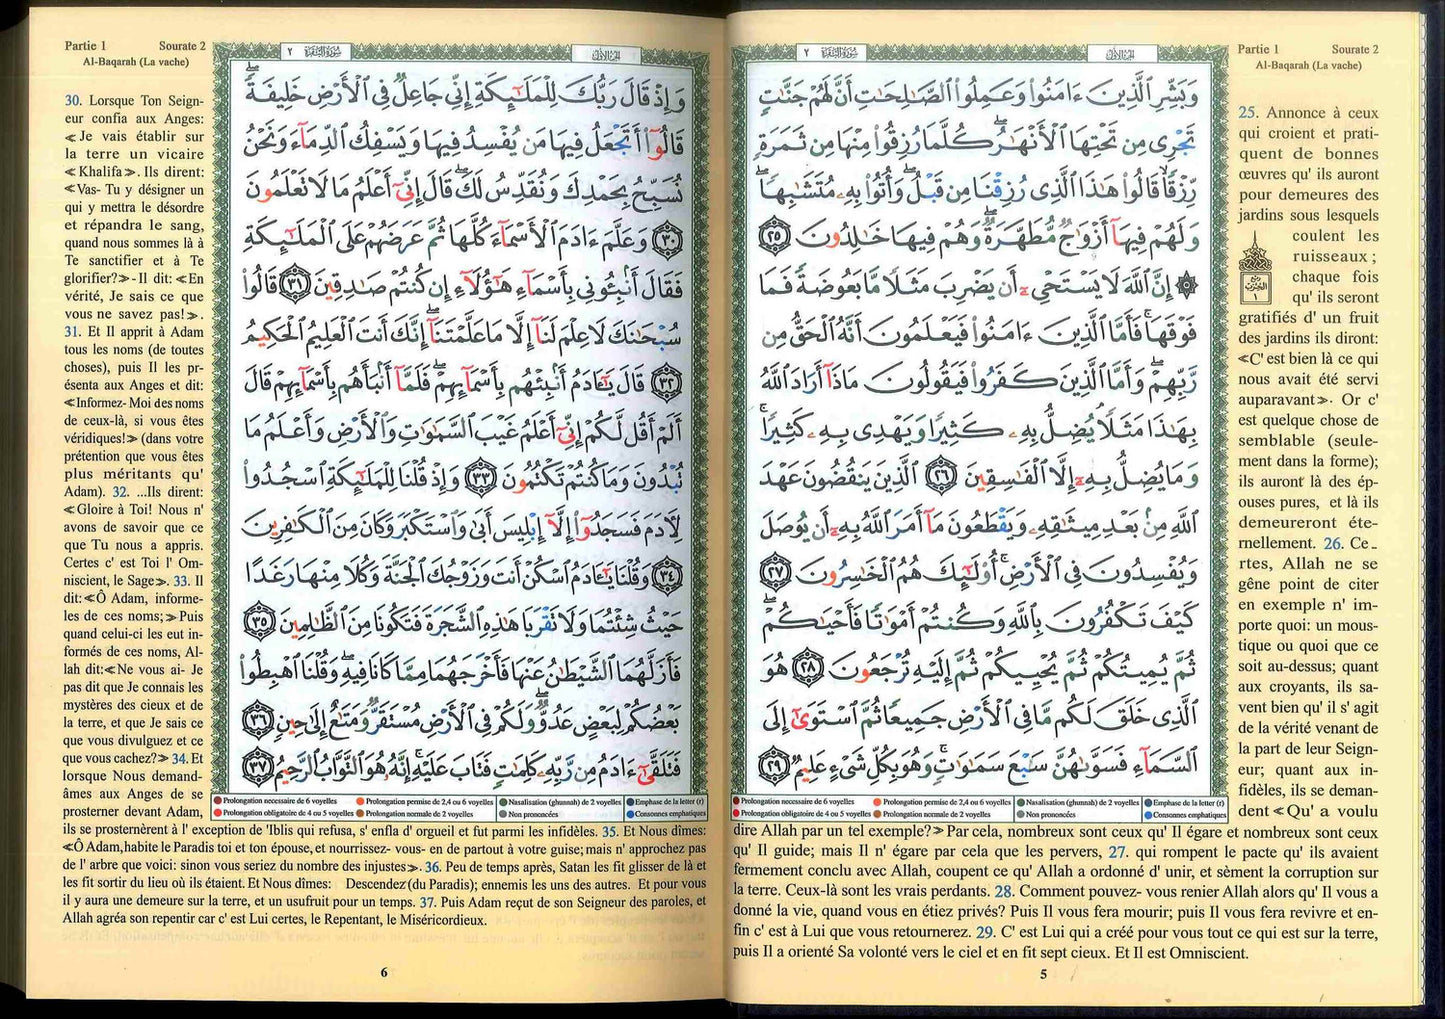 Partie 1 Sourate 2
Al-Baqarah (La vache)
سورة البقرة ٢
الجزء الأول
وَبَشِّرِ الَّذِينَ ءَامَنُوا وَعَمِلُوا الصَّالِحَاتِ أَنَّ لَهُمْ جَنَّاتٍ
تَجْرِي مِن تَحْتِهَا الْأَنْهَارُ كُلَّمَا رُزِقُوا مِنْهَا مِن ثَمَرَةٍ
رِّزْقًا قَالُوا هَٰذَا الَّذِي رُزِقْنَا مِن قَبْلُ وَأُتُوا بِهِ مُتَشَابِهًا
وَلَهُمْ فِيهَا أَزْوَاجٌ مُّطَهَّرَةٌ وَهُمْ فِيهَا خَالِدُونَ ٢٥
۞ إِنَّ اللَّهَ لَا يَسْتَحْيِي أَن يَضْرِبَ مَثَلًا مَّا بَعُوضَةً فَمَا
فَوْقَهَا فَأَمَّا الَّذِينَ ءَامَنُوا فَيَعْلَمُونَ أَنَّهُ الْحَقُّ مِن
رَّبِّهِمْ وَأَمَّا الَّذِينَ كَفَرُوا فَيَقُولُونَ مَاذَا أَرَادَ اللَّهُ
بِهَٰذَا مَثَلًا يُضِلُّ بِهِ كَثِيرًا وَيَهْدِي بِهِ كَثِيرًا
وَمَا يُضِلُّ بِهِ إِلَّا الْفَاسِقِينَ ٢٦ الَّذِينَ يَنقُضُونَ عَهْدَ
اللَّهِ مِن بَعْدِ مِيثَاقِهِ وَيَقْطَعُونَ مَا أَمَرَ اللَّهُ بِهِ أَن يُوصَلَ
وَيُفْسِدُونَ فِي الْأَرْضِ أُولَٰئِكَ هُمُ الْخَاسِرُونَ ٢٧
كَيْفَ تَكْفُرُونَ بِاللَّهِ وَكُنتُمْ أَمْوَاتًا فَأَحْيَاكُمْ
ثُمَّ يُمِيتُكُمْ ثُمَّ يُحْيِيكُمْ ثُمَّ إِلَيْهِ تُرْجَعُونَ ٢٨ هُوَ
الَّذِي خَلَقَ لَكُم مَّا فِي الْأَرْضِ جَمِيعًا ثُمَّ اسْتَوَىٰ إِلَى
السَّمَاءِ فَسَوَّاهُنَّ سَبْعَ سَمَاوَاتٍ وَهُوَ بِكُلِّ شَيْءٍ عَلِيمٌ ٢٩
25. Annonce à ceux
qui croient et prati-
quent de bonnes
œuvres qu' ils auront
pour demeures des
jardins sous lesquels
coulent les
ruisseaux ;
chaque fois
qu' ils seront
gratifiés d' un fruit
des jardins ils diront:
≪C' est bien là ce qui
nous avait été servi
auparavant≫. Or c'
est quelque chose de
semblable (seule-
ment dans la forme);
ils auront là des ép-
ouses pures, et là ils
demeureront éte-
rnellement. 26. Ce_
rtes, Allah ne se
gêne point de citer
en exemple n' im-
porte quoi: un mous-
tique ou quoi que ce
soit au-dessus; quant
aux croyants, ils sa-
vent bien qu' il s' agit
de la vérité venant de
la part de leur Seign-
eur; quant aux in-
fidèles, ils se deman-
dent ≪Qu' a voulu
dire Allah par un tel exemple?≫ Par cela, nombreux sont ceux qu' Il égare et nombreux sont ceux
qu' Il guide; mais Il n' égare par cela que les pervers, 27. qui rompent le pacte qu' ils avaient
fermement conclu avec Allah, coupent ce qu' Allah a ordonné d' unir, et sèment la corruption sur
la terre. Ceux-là sont les vrais perdants. 28. Comment pouvez- vous renier Allah alors qu' Il vous a
donné la vie, quand vous en étiez privés? Puis Il vous fera mourir; puis Il vous fera revivre et en-
fin c' est à Lui que vous retournerez. 29. C' est Lui qui a créé pour vous tout ce qui est sur la terre,
puis Il a orienté Sa volonté vers le ciel et en fit sept cieux. Et Il est Omniscient.
Prolongation necessaire de 6 voyelles Prolongation permise de 2,4 ou 6 voyelles Nasalisation (ghunnah) de 2 voyelles Emphase de la letter (r)
Prolongation obligatoire de 4 ou 5 voyelles Prolongation normale de 2 voyelles Non prononcées Consonnes emphatiques
5
Partie 1 Sourate 2
Al-Baqarah (La vache)
سورة البقرة ٢
الجزء الأول
وَإِذْ قَالَ رَبُّكَ لِلْمَلَائِكَةِ إِنِّي جَاعِلٌ فِي الْأَرْضِ خَلِيفَةً
قَالُوا أَتَجْعَلُ فِيهَا مَن يُفْسِدُ فِيهَا وَيَسْفِكُ الدِّمَاءَ وَنَحْنُ
نُسَبِّحُ بِحَمْدِكَ وَنُقَدِّسُ لَكَ قَالَ إِنِّي أَعْلَمُ مَا لَا تَعْلَمُونَ
٣٠ وَعَلَّمَ ءَادَمَ الْأَسْمَاءَ كُلَّهَا ثُمَّ عَرَضَهُمْ عَلَى الْمَلَائِكَةِ
فَقَالَ أَنبِئُونِي بِأَسْمَاءِ هَٰؤُلَاءِ إِن كُنتُمْ صَادِقِينَ ٣١ قَالُوا
سُبْحَانَكَ لَا عِلْمَ لَنَا إِلَّا مَا عَلَّمْتَنَا إِنَّكَ أَنتَ الْعَلِيمُ الْحَكِيمُ
٣٢ قَالَ يَا ءَادَمُ أَنبِئْهُم بِأَسْمَائِهِمْ فَلَمَّا أَنبَأَهُم بِأَسْمَائِهِمْ قَالَ
أَلَمْ أَقُل لَّكُمْ إِنِّي أَعْلَمُ غَيْبَ السَّمَاوَاتِ وَالْأَرْضِ وَأَعْلَمُ مَا
تُبْدُونَ وَمَا كُنتُمْ تَكْتُمُونَ ٣٣ وَإِذْ قُلْنَا لِلْمَلَائِكَةِ اسْجُدُوا
لِآدَمَ فَسَجَدُوا إِلَّا إِبْلِيسَ أَبَىٰ وَاسْتَكْبَرَ وَكَانَ مِنَ الْكَافِرِينَ
٣٤ وَقُلْنَا يَا ءَادَمُ اسْكُنْ أَنتَ وَزَوْجُكَ الْجَنَّةَ وَكُلَا مِنْهَا رَغَدًا
حَيْثُ شِئْتُمَا وَلَا تَقْرَبَا هَٰذِهِ الشَّجَرَةَ فَتَكُونَا مِنَ الظَّالِمِينَ ٣٥
فَأَزَلَّهُمَا الشَّيْطَانُ عَنْهَا فَأَخْرَجَهُمَا مِمَّا كَانَا فِيهِ وَقُلْنَا اهْبِطُوا
بَعْضُكُمْ لِبَعْضٍ عَدُوٌّ وَلَكُمْ فِي الْأَرْضِ مُسْتَقَرٌّ وَمَتَاعٌ إِلَىٰ حِينٍ ٣٦
فَتَلَقَّىٰ ءَادَمُ مِن رَّبِّهِ كَلِمَاتٍ فَتَابَ عَلَيْهِ إِنَّهُ هُوَ التَّوَّابُ الرَّحِيمُ ٣٧
30. Lorsque Ton Seign-
eur confia aux Anges:
≪Je vais établir sur
la terre un vicaire
≪Khalifa≫. Ils dirent:
≪Vas- Tu y désigner un
qui y mettra le désordre
et répandra le sang,
quand nous sommes là à
Te sanctifier et à Te
glorifier?≫-Il dit: ≪En
vérité, Je sais ce que
vous ne savez pas!≫.
31. Et Il apprit à Adam
tous les noms (de toutes
choses), puis Il les pr-
ésenta aux Anges et dit:
≪Informez- Moi des noms
de ceux-là, si vous êtes
véridiques!≫ (dans votre
prétention que vous êtes
plus méritants qu'
Adam). 32. ...Ils dirent:
≪Gloire à Toi! Nous n'
avons de savoir que ce
que Tu nous a appris.
Certes c' est Toi l' Om-
niscient, le Sage≫. 33. Il
dit:≪Ô Adam, informe-
les de ces noms;≫Puis
quand celui-ci les eut in-
formés de ces noms, Al-
lah dit:≪Ne vous ai- Je
pas dit que Je connais les
mystères des cieux et de
la terre, et que Je sais ce
que vous divulguez et ce
que vous cachez?≫ 34. Et
lorsque Nous demand-
âmes aux Anges de se
prosterner devant Adam,
ils se prosternèrent à l' exception de 'Iblis qui refusa, s' enfla d' orgueil et fut parmi les infidèles. 35. Et Nous dîmes:
≪Ô Adam,habite le Paradis toi et ton épouse,et nourrissez- vous- en de partout à votre guise;mais n' approchez pas
de l' arbre que voici: sinon vous seriez du nombre des injustes≫. 36. Peu de temps après, Satan les fit glisser de là et
les fit sortir du lieu où ils étaient. Et Nous dîmes: Descendez(du Paradis); ennemis les uns des autres. Et pour vous
il y aura une demeure sur la terre, et un usufruit pour un temps. 37. Puis Adam reçut de son Seigneur des paroles, et
Allah agréa son repentir car c' est Lui certes, le Repentant, le Miséricordieux.
Prolongation necessaire de 6 voyelles Prolongation permise de 2,4 ou 6 voyelles Nasalisation (ghunnah) de 2 voyelles Emphase de la letter (r)
Prolongation obligatoire de 4 ou 5 voyelles Prolongation normale de 2 voyelles Non prononcées Consonnes emphatiques
6